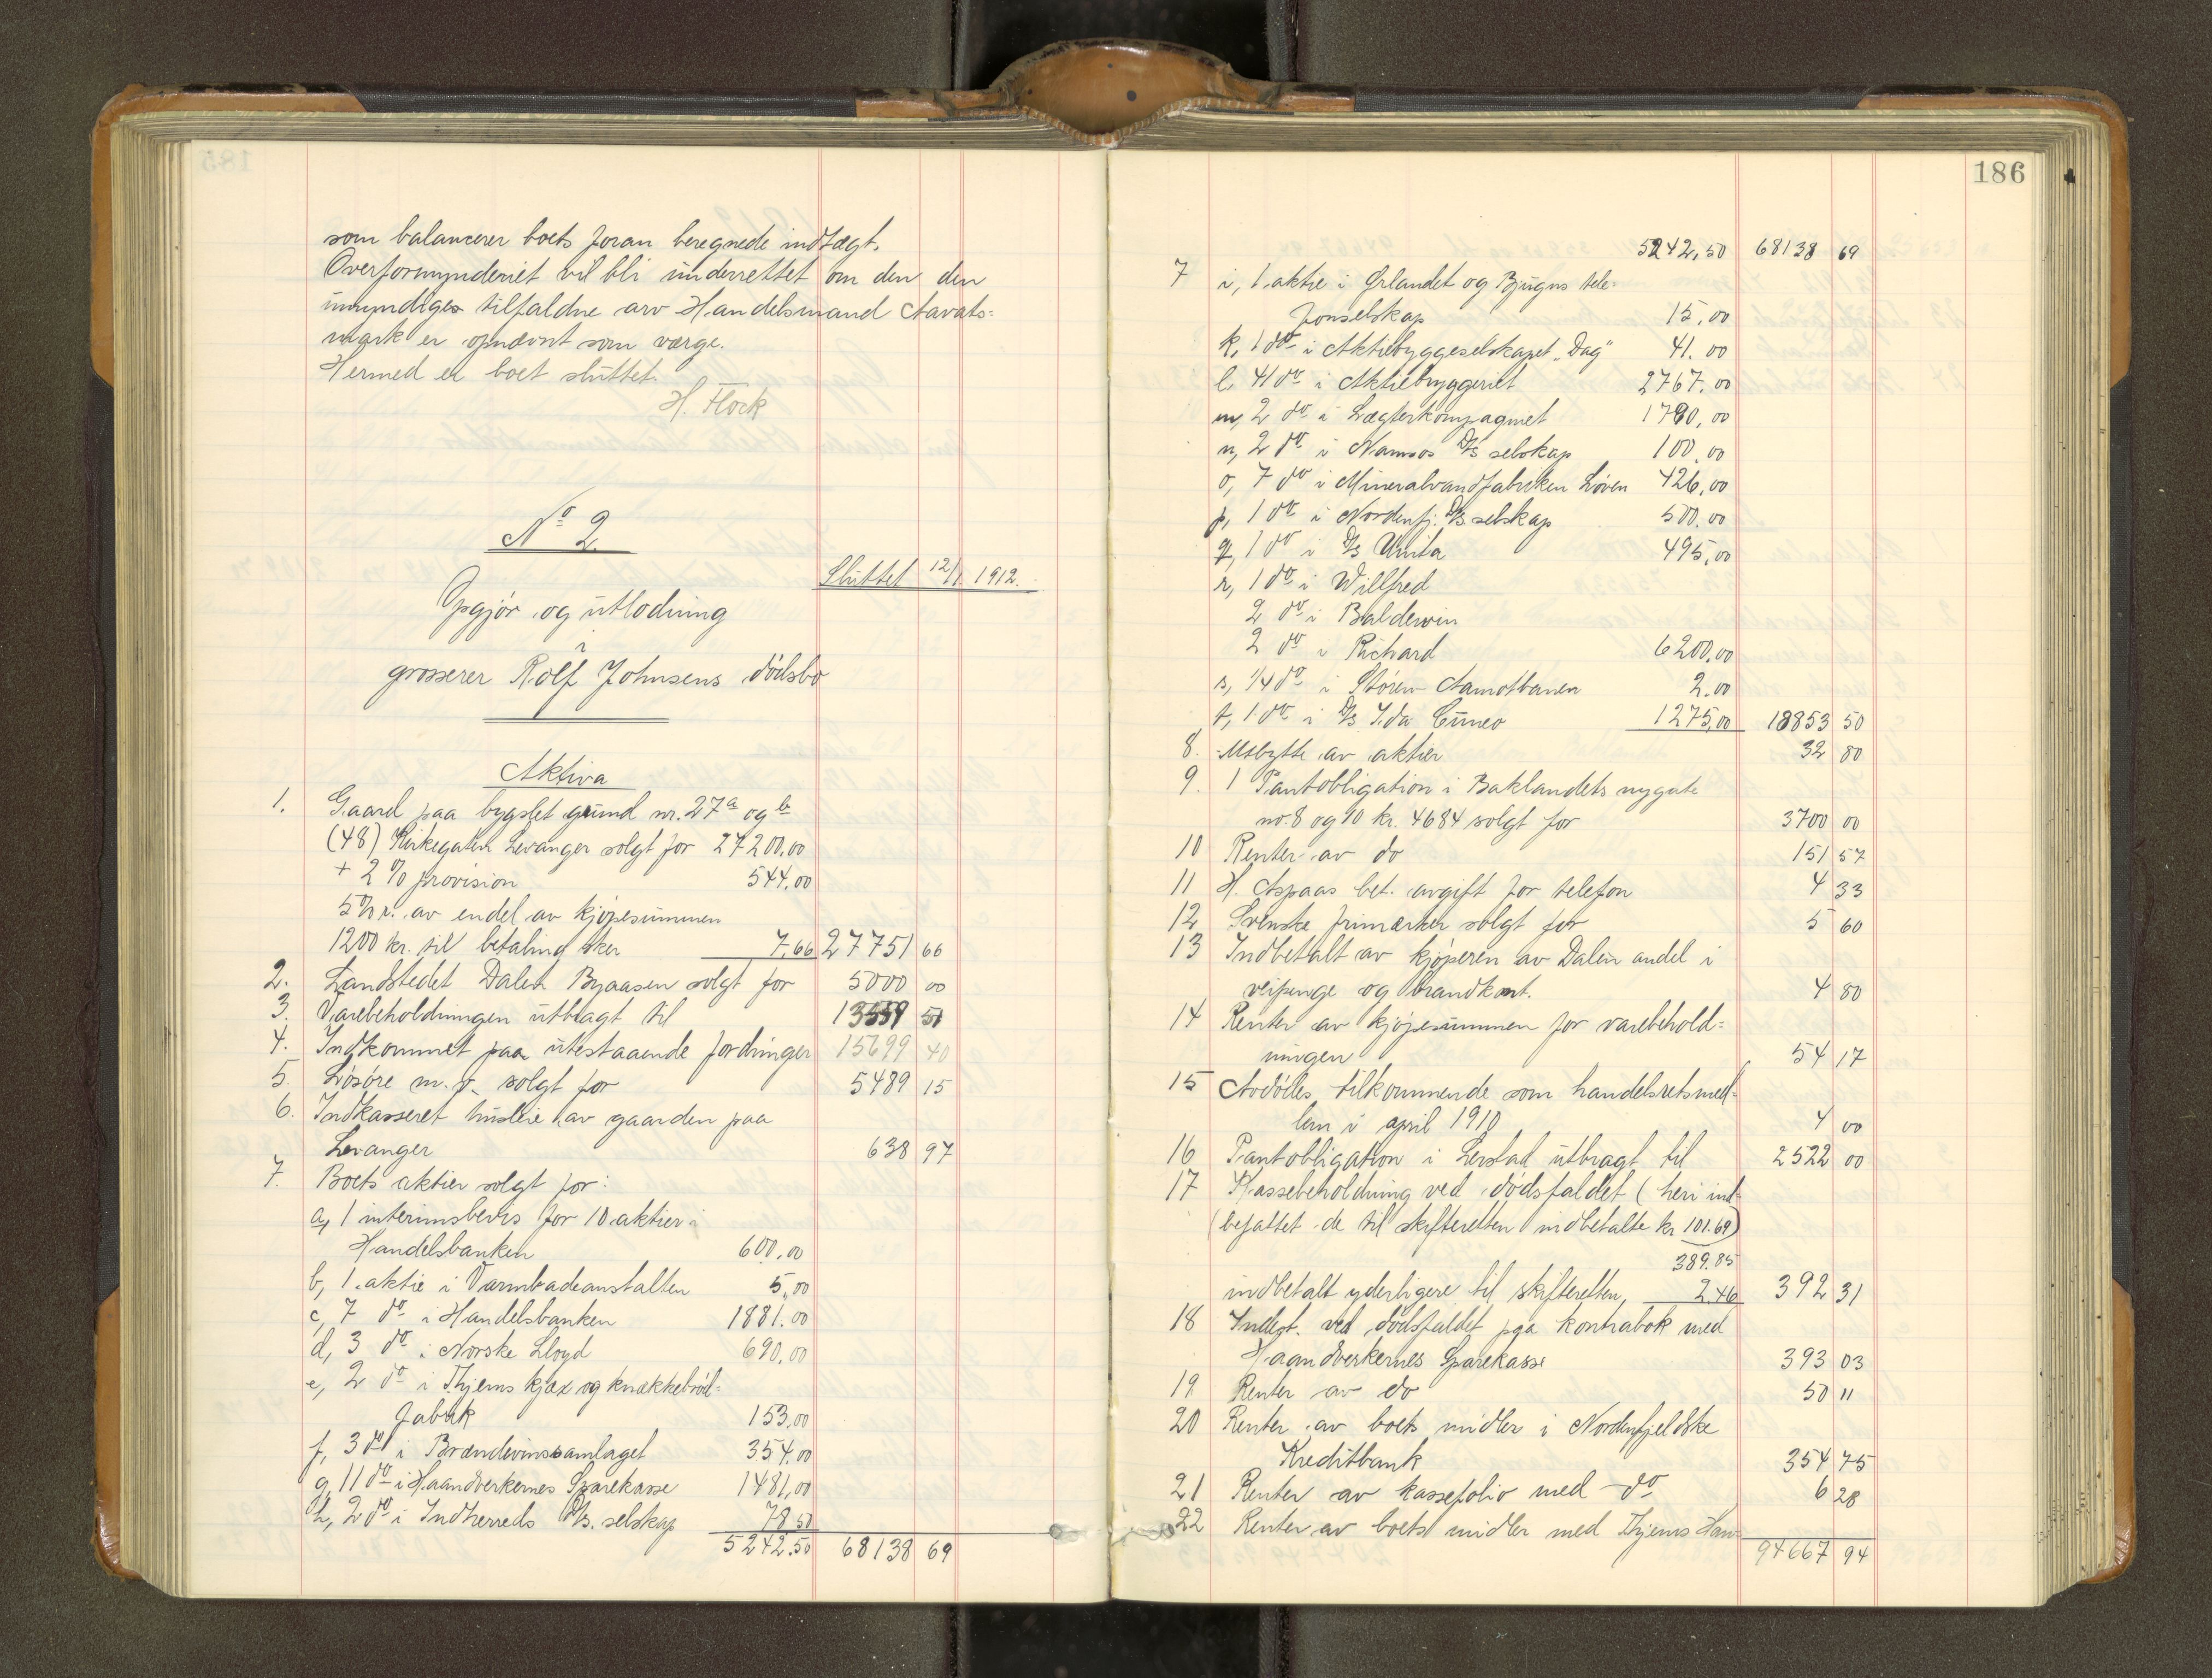 som balancerer boets foran beregnede indtægt.
Overformynderiet vil bli underrettet om den den
umyndiges tilfaldne arv Handelsmand Aavats=
mark er opnævnt som værge.
Hermed er boet sluttet.
H. Flock
No 2.
Sluttet 12/1 1912.
Opgjør og utlodning
i
grosserer Rolf Johnsens dödsbo
Aktiva
1. Gaard paa bygslet grund nr. 27a og b
(48) Kirkegaten Levanger solgt for 27200,00
+ 2 % provision 544,00
5% r. av endel av kjøpesummen
1200 kr. til betaling sker 7,66 27751 66
2. Landstedet Dalen Byaasen solgt for 5000 00
3. Varebeholdningen utbragt til 13559 51
4. Indkommet paa utestaaende fordringer 15699 40
5. Lösöre m. v. solgt for 5489 15
6. Indkasseret husleie av gaarden paa
Levanger 638 97
7. Boets aktier solgt for:
a, 1 interimsbevis for 10 aktier i
Handelsbanken 600,00
b, 1 aktie i Varmbadeanstalten 5,00
c, 7 do i Handelsbanken 1881.00
d, 3 do i Norske Lloyd 690,00
e, 2 do i Thjems kjæx og knækkebröd=
fabrik 153,00
f, 3 do i Brændevinssamlaget 354,00
g, 11 do i Haandverkernes Sparekasse 1481,00
h, 2 do i Indherreds D/s. selskap 78 50
5242.50 68138 69
186
5242,50 68138 69
7 i, 1 aktie i Ørlandet og Bjugns tele=
fonselskap 15,00
k, 1 do i Aktiebyggeselskapet "Dag" 41.00
l, 41 do i Aktiebryggeriet 2767.00
m, 2 do i Lægterkompagniet 1790,00
n, 2 do i Namsos D/s selskap 100.00
o, 7 do i Mineralvandfabriken Løven 426,00
p, 1 do i Nordenfj. D/s selskap 500.00
q, 1 do i D/s Unita 495,00
r, 1 do i Willfred
2 do i Baldewin
2 do i Richard 6200,00
s, 1/4 do i Støren Aamotbanen 2.00
t, 1 do i D/s Ida Cuneo 1275,00 18853 50
8. Utbytte av aktier 32 80
9. 1 Pantobligation i Baklandets nygate
no. 8 og 10 kr. 4684 solgt for 3700 00
10 Renter av do 151 57
11 H. Aspaas bet. avgift for telefon 4 33
12 Svenske frimærker solgt for 5 60
13 Indbetalt av kjøperen av Dalen andel i
veipenge og brandkont. 4 80
14 Renter av kjøpesummen for varebehold=
ningen 54 17
15 Avdødes tilkommende som handelsretsmed=
lem i april 1910 4 00
16 Pantobligation i Lerstad utbragt til 2522 00
17 Kassebeholdning ved dödsfaldet (heri ind=
(befattet de til skifteretten indbetalte kr 101.69)
389.85
indbetalt yderligere til skifteretten, 2.46 392 31
18 Indest. ved dødsfaldet paa kontrabok med
Haandverkernes Sparekasse 393 03
19 Renter av do 50 11
20 Renter av boets midler i Nordenfjeldske
Kreditbank 354 75
21 Renter av kassefolio med do 6 28
22 Renter av boets midler med Thjems Han=
94667 94